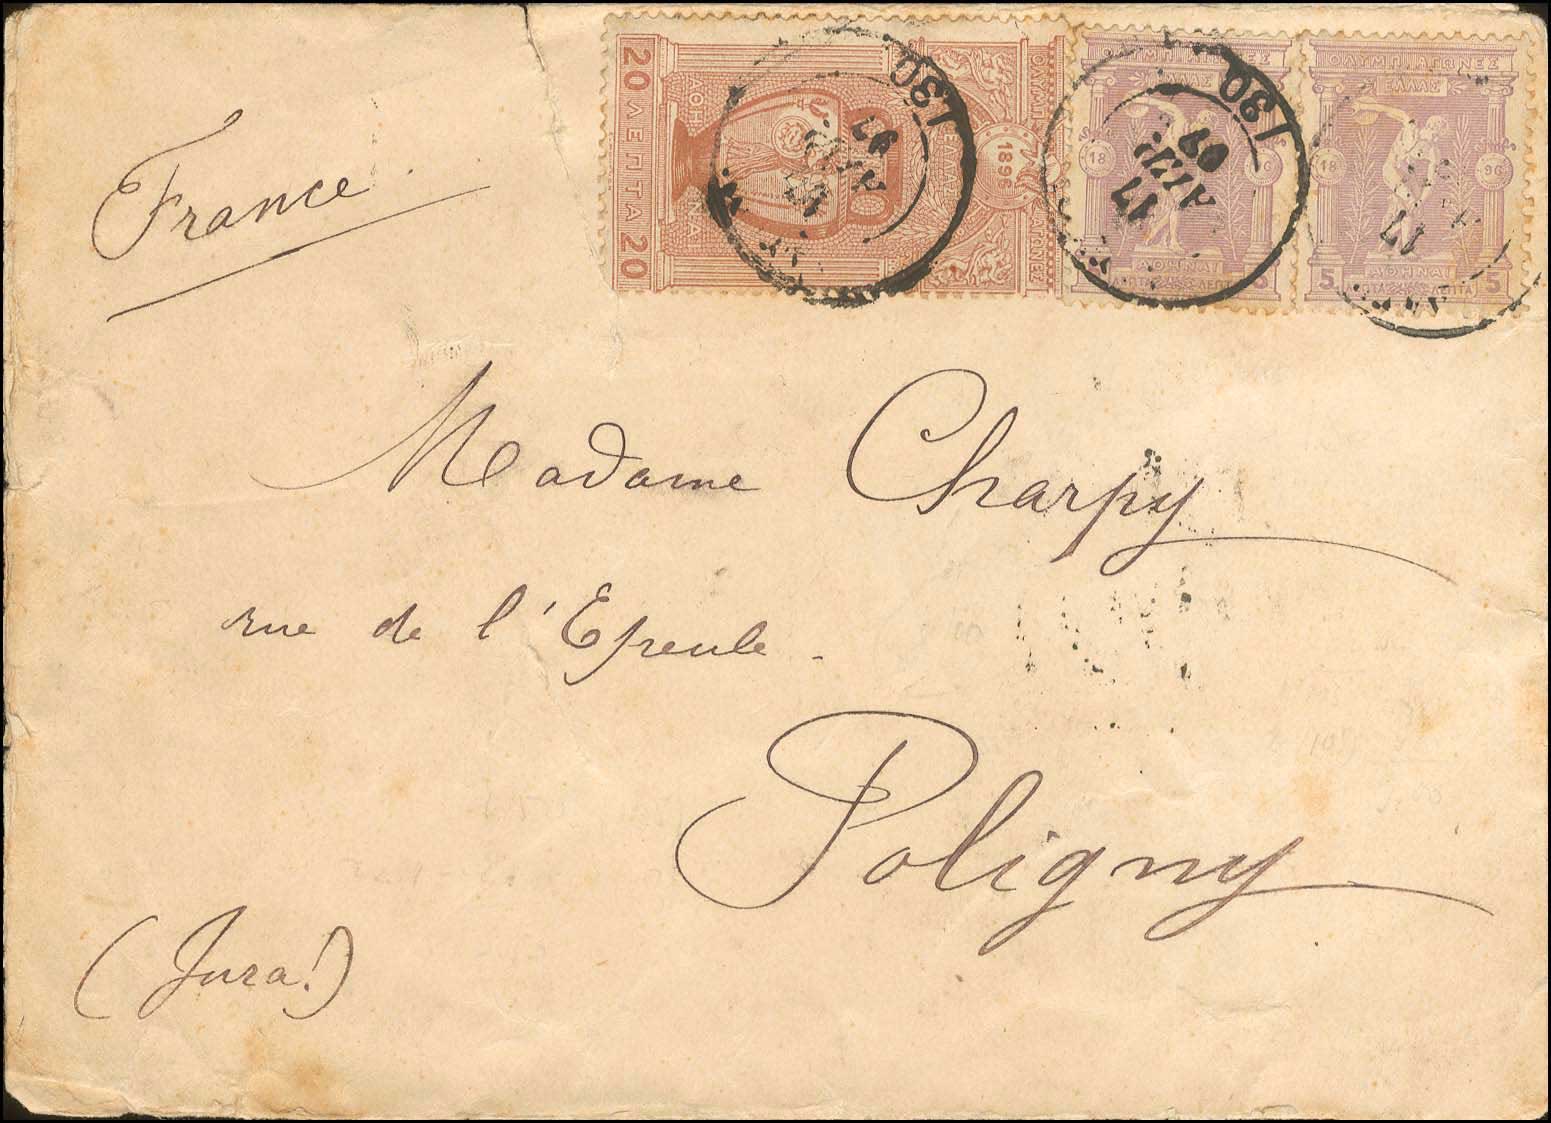 France
20 ΛΕΠΤΑ 20
1896
ΟΛΥΜΠ. ΑΓΩΝΕΣ
ΕΛΛΑΣ
18 96
ΑΘΗΝΑΙ
5 5
ΟΛΥΜΠ. ΑΓΩΝΕΣ
ΕΛΛΑΣ
18 96
ΑΘΗΝΑΙ
5 ΛΕΠΤΑ 5
130
17
97
130
17
97
17
Madame Charpy
rue de l'Epeule.
Poligny
(Jura.)